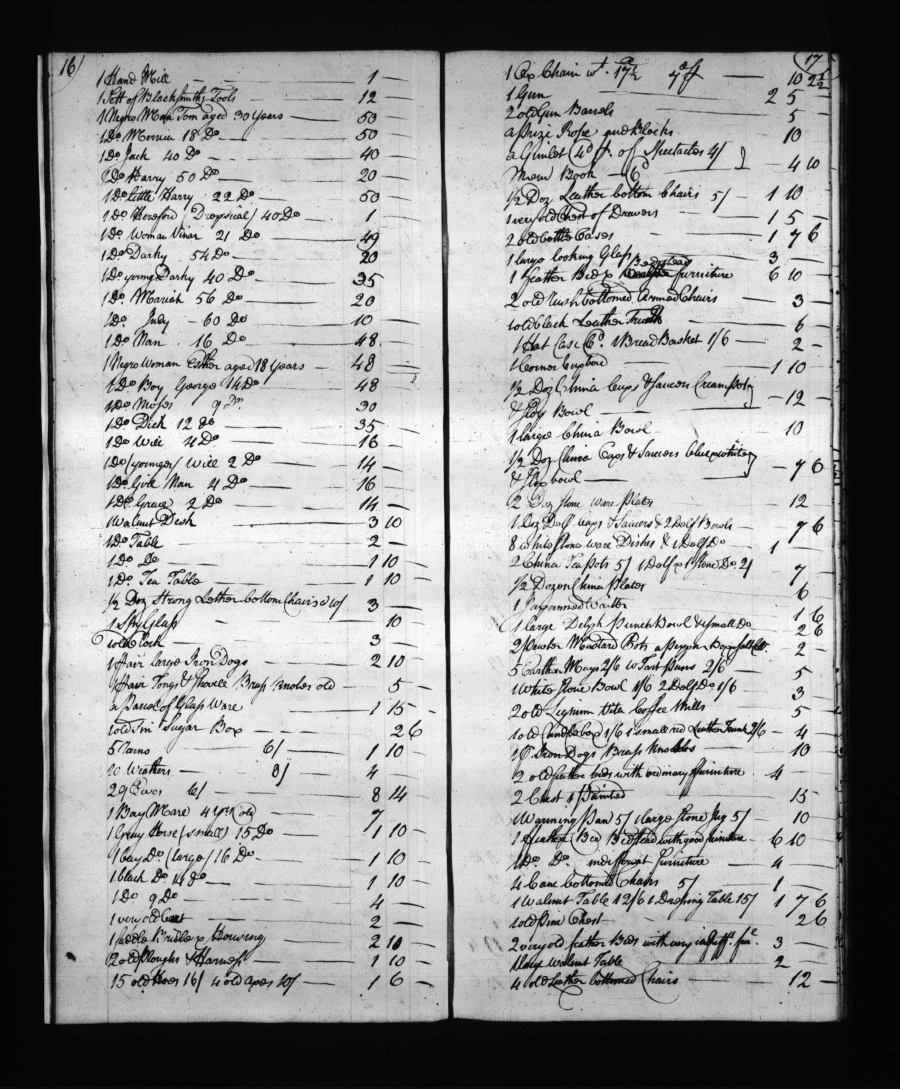 16/
1 Hand Mill — — 1 —
1 Sett of Blacksmiths Tools 12 —
1 Negro Man Tom aged 30 Years — 50 —
1 Do Merrica 18 Do — 50
1 Do Jack 40 Do — 40
1 Do Harry 50 Do — 20 —
1 Do Little Harry 22 Do 50
1 Do Hereford (Dropsical) 40 Do 1 —
1 Do Woman Vinar 21 Do — 49
1 Do Darky 54 Do — 20
1 Do young Darky 40 Do — 35
1 Do Mariah 56 Do — 20
1 Do Judy — 60 Do 10 —
1 Do Nan 16 Do — 48
1 Negro Woman Esther aged 18 Years — 48 —
1 Do Boy George 14 Do 48 —
1 Do Moses 9 Do 30
1 Do Dick 12 do — 35 —
1 Do Will 4 Do — 16
1 Do (younger) Will 2 Do — 14 —
1 Do Girl Nan 4 Do — 16
1 Do Grace 2 Do — 14 —
1 Walnut Desk 3 10
1 Do Table 2 —
1 Do Do 1 10 —
1 Do Tea Table — 1 10
½ Doz Strong Lether bottom Chairs @ 10/ 3 —
1 Spy Glass — 10
1 old Clock 3 —
1 Pair large Iron Dogs 2 10
1 Pair Tongs & Shovell Brass knobes old — 5 —
a Parcel of Glass Ware 1 15 —
1 old Tin Sugar Box 2 6
5 Rams 6/ — 1 10 —
10 Wethers — 8/ — 4 —
29 Ewes 6/ — 8 14
1 Bay Mare 4 yrs old 7 —
1 Gray Horse (small) 15 Do — 1 10 —
1 bay Do (large) 16 Do — 1 10
1 black Do 14 do — 1 10 —
1 Do 9 Do — 4 —
1 very old 2 —
1 Saddle Bridle & Housing 2 10 —
2 old Ploughs & Harness 1 10 —
15 old Hoes 16/ 4 old axes 10/ — 1 6 —
17
1 Ox Chain wt. 17½ 7 ff — 10 2½
1 Gun 2 5 —
2 old Gun Barrels 5 —
a Prize Rope and Blocks 10
a Gimlet of 4/ } — 4 10
Book —
½ Doz Leather bottom Chairs 5/ — 1 10
1 very old Chest of Drawers 1 5 —
2 old bottle Cases 1 7 6
1 large looking Glass 3 —
1 feather Bed & Bedstead furniture 6 10 —
2 old rush bottomed Armed Chairs — 3 —
1 old black Leather Trunk 6 —
1 Hat Case 1 Bread Basket 1/6 — 2 —
1 Corner Cupbord 1 10
½ Doz China Cups & Saucers Cream pot } — 12 —
& Slop Bowl —
1 large China Bowl — 10
½ Doz China Cups & Saucers blue & white } — 7 6
& slop bowl —
2 Doz stone ware Plates 12
1 Doz Delf Cups & Saucers & 2 Delf Bowls — 7 6
8 white Stone ware Dishes & 1 Delf Do — 1 —
2 China Tea Pots 5/ 1 Delf & 1 Stone Do 2/ 7
½ Dozen China Plates 6
1 Japanned Waiter 1 6
1 large Delph Punch Bowl & 1 small do 2 6
2 Pewter Mustard Pots a Pepper 2 —
5 Earthen Mugs 2/6 10 Tart Pans 2/6 — 5
1 White Stone Bowl 1/6 2 Delf Do 1/6 3 —
2 old Lignum Vita Coffee Mills 5 —
1 old Candle box 1/6 1 small red Leather Trunk 2/6 — 4
1 Pr Iron Dogs Brass Knobbs 10
2 old feather beds with ordinary furniture 4 —
2 Chest 1 Painted 15 —
Warming Pan 5/ 1 large Stone Jug 5/ — 10
1 Feather Bed Bedstead with good furniture 6 10
1 Do Do indifferent Furniture — 4
4 Cane bottomed Chairs 5/ 1
1 Walnut Table 12/6 1 Dressing Table 15/ 1 7 6
1 old Pine Chest — 2 6
2 very old feather Beds with very indifft. fure. 3 —
1 Walnut Table 2 —
4 old Leather bottomed Chairs 12 —